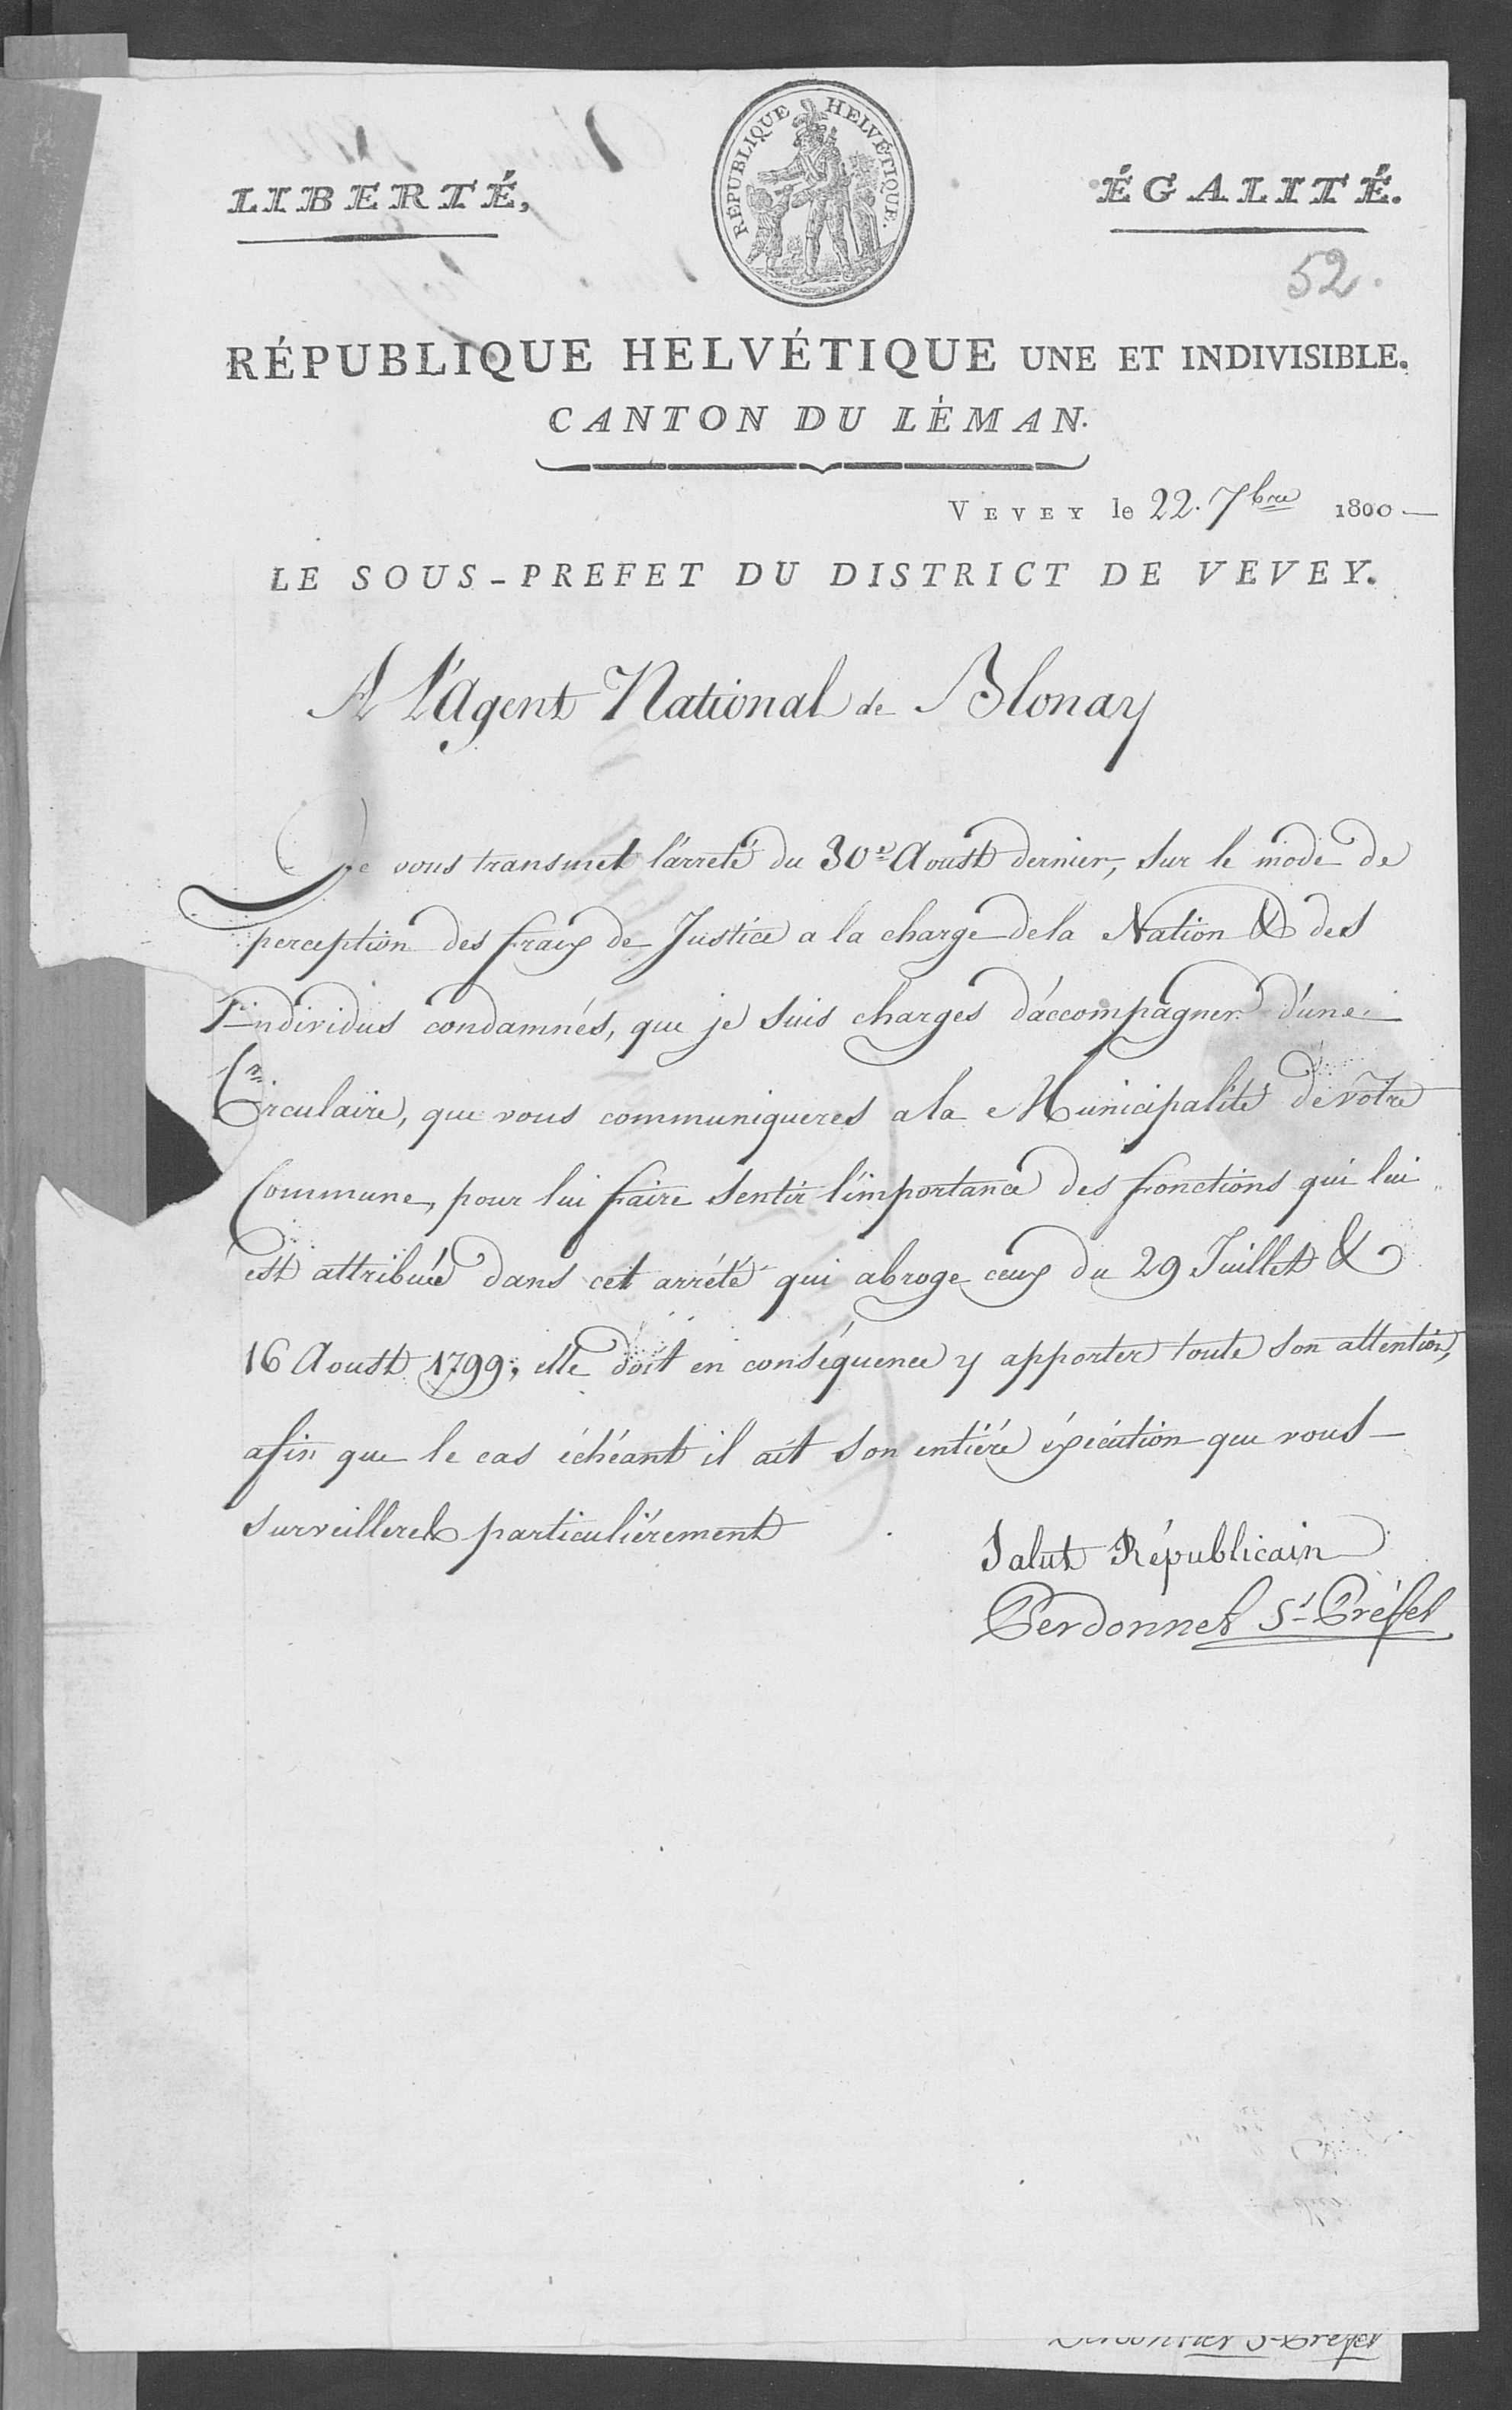 RÉPUBLIQUE HELVÉTIQUE.
LIBERTÉ,
ÉGALITÉ.
52.
RÉPUBLIQUE HELVÉTIQUE UNE ET INDIVISIBLE.
CANTON DU LÉMAN.
VEVEY le 22. 7bre 1800 —
LE SOUS-PREFET DU DISTRICT DE VEVEY.
A L'Agent National de Blonay
Je vous transmet l'arreté du 30e Aoust dernier, sur le mode de
perception des fraix de Justice a la charge de la Nation & des
Individus condamnés, que je suis charges d'accompagner d'une
Circulaire, que vous communiqueres a la Municipalité de votre
Commune, pour lui faire sentir l'importance des fonctions qui lui
est attribuée dans cet arrété qui abroge ceux du 29 Juillet &
16 Aoust 1799, elle doit en conséquence y apporter toute son attention,
afin que le cas échéant il ait son entiére éxécution que vous
surveillerez particuliérement
Salut Républicain
Perdonnet Ss Préfet
Perdonnet Ss Préfet